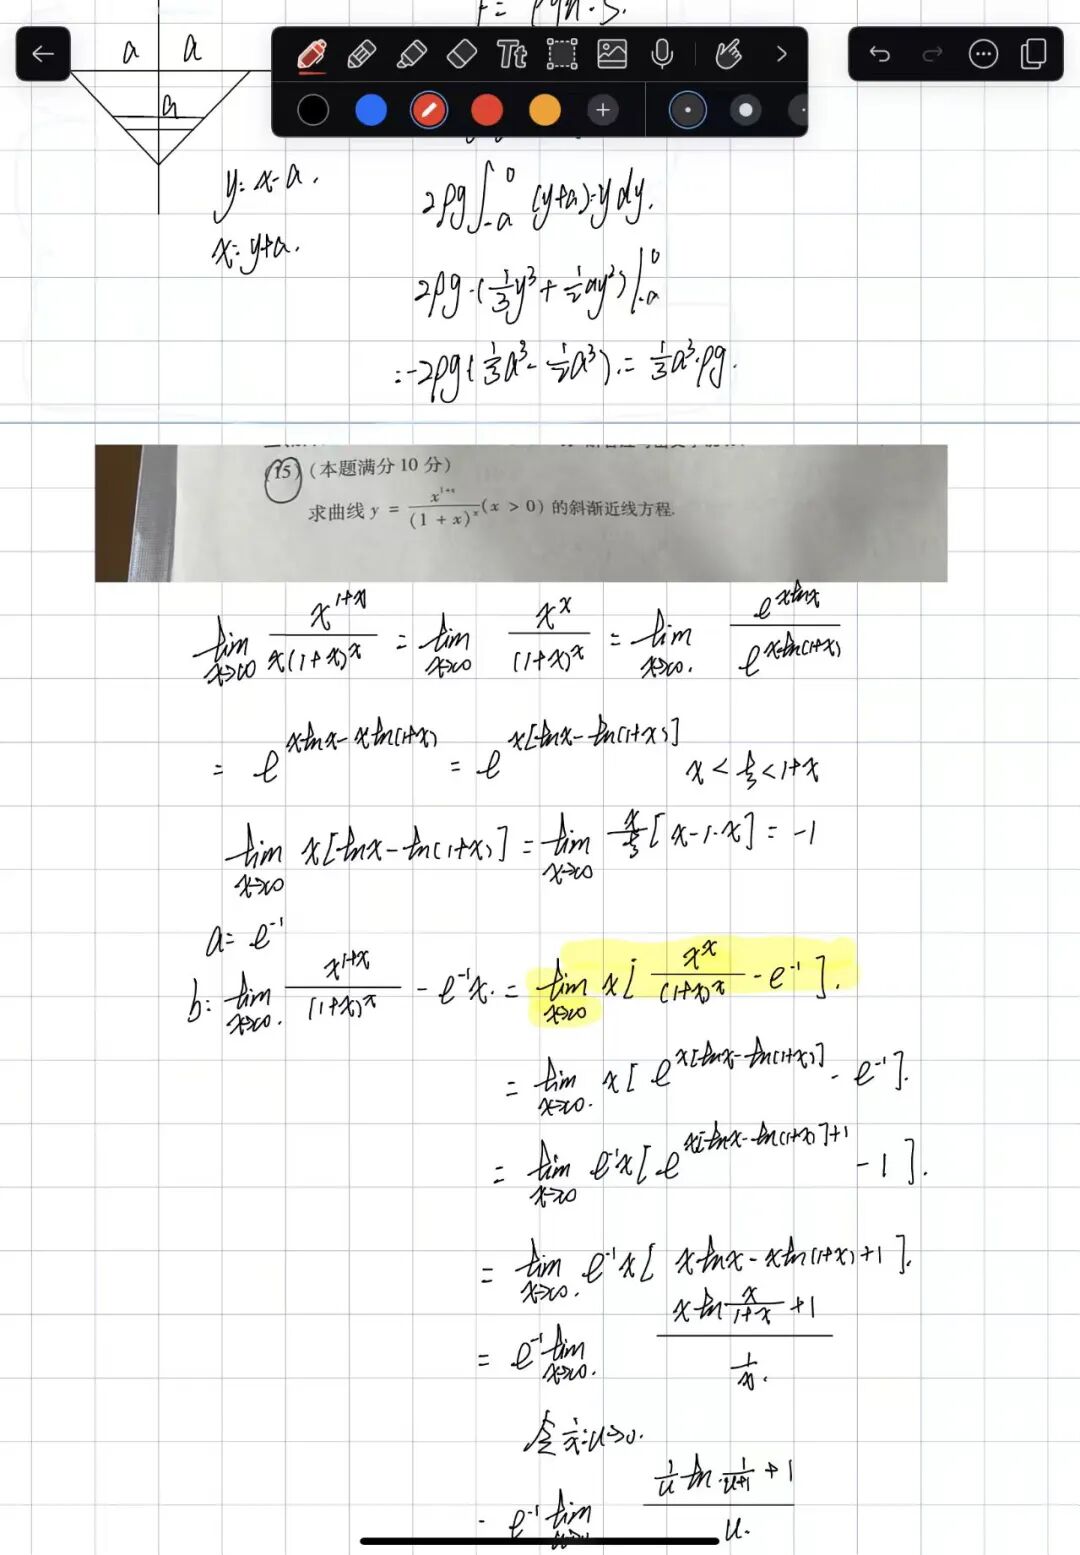 a a
a
y = x-a.
x = y+a.
2ρg∫_{-a}^{0} (y+a)·y dy.
2ρg·(1/3 y³ + 1/2 ay²)|_{-a}^{0}
= -2ρg(1/3 a³ - 1/2 a³). = 1/3 a³·ρg.
(15) (本题满分10分)
求曲线 y = x^{1+x}/(1 + x)^x (x > 0) 的斜渐近线方程.
lim_{x→∞} x^{1+x}/(x(1+x)^x) = lim_{x→∞} x^x/(1+x)^x = lim_{x→∞.} e^{xlnx}/e^{x·ln(1+x)}
= e^{xlnx-xln(1+x)} = e^{x[lnx-ln(1+x)]} x < ξ < 1+x
lim_{x→∞} x[lnx-ln(1+x)] = lim_{x→∞} x/ξ [x-1-x] = -1
a = e^{-1}
b: lim_{x→∞.} x^{1+x}/(1+x)^x - e^{-1}x. = lim_{x→∞} x[x^x/(1+x)^x - e^{-1}].
= lim_{x→∞.} x[e^{x[lnx-ln(1+x)]} - e^{-1}].
= lim_{x→∞} e^{-1}x[e^{x[lnx-ln(1+x)]+1} - 1].
= lim_{x→∞.} e^{-1}x[xlnx-xln(1+x)+1].
= e^{-1} lim_{x→∞.} (x ln x/(1+x) + 1)/(1/x).
令 1/x = u→0.
= e^{-1} lim (1/u ln·1/(u+1) + 1)/u.